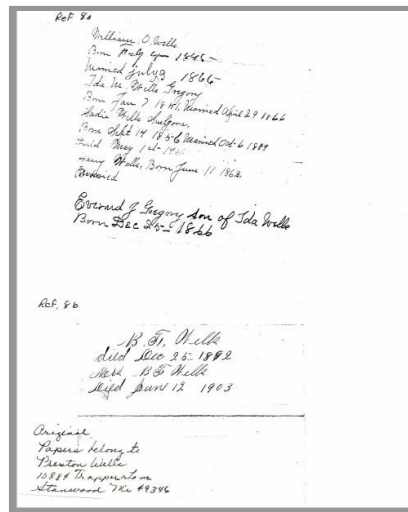 Ref 8a
William O. Wells
Born 1845
Married July 9 1865
Ida M. Wells Gregory
Born Jan 7 Married April 29 1866
Sadie Wells
Born Sept 14 1856 Married Oct 6 1889
May 1st
Wells, Born June 11 1862
Everard J Gregory son of Ida Wells
Born Dec 25 - 1866
Ref. 8b
B. F. Wells
died Dec 25 1892
B F Wells
Died June 12 1903
Original
Papers belong to
Preston Wells
10884 Trapper Lane
Stanwood Mi 49346